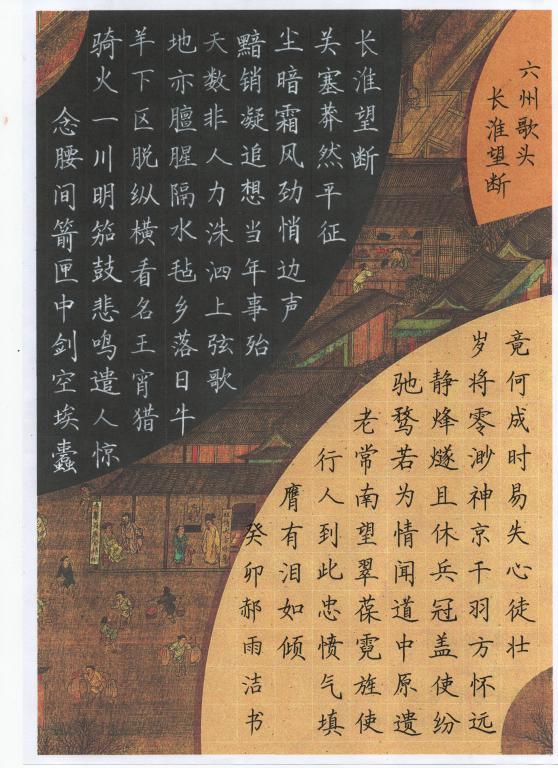 六州歌头
长淮望断
长淮望断
关塞莽然平征
尘暗霜风劲悄边声
黯销凝追想当年事殆
天数非人力洙泗上弦歌
地亦膻腥隔水毡乡落日牛
羊下区脱纵横看名王宵猎
骑火一川明笳鼓悲鸣遣人惊
念腰间箭匣中剑空埃蠹
竟何成时易失心徒壮
岁将零渺神京干羽方怀远
静烽燧且休兵冠盖使纷
驰骛若为情闻道中原遗
老常南望翠葆霓旌使
行人到此忠愤气填
膺有泪如倾
癸卯郝雨洁书